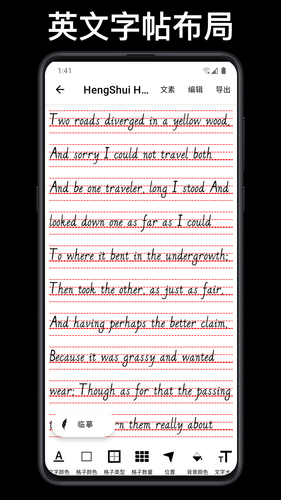 英文字帖布局
1:41
HengShui H... 文素 编辑 导出
Two roads diverged in a yellow wood,
And sorry I could not travel both
And be one traveler, long I stood And
looked down one as far as I could
To where it bent in the undergrowth;
Then took the other, as just as fair,
And having perhaps the better claim,
Because it was grassy and wanted
wear; Though as for that the passing
临摹 rn them really about
文字颜色 格子颜色 格子类型 格子数量 位置 背景颜色 文字大